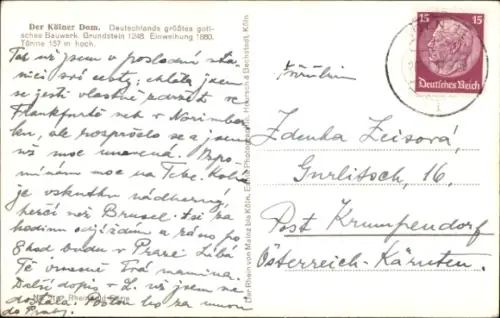 Der Kölner Dom. Deutschlands größtes goti-
sches Bauwerk. Grundstein 1248. Einweihung 1880.
Türme 157 m hoch.
Tak už jsem v poslední sta-
nici své cesty; chtěla jsem
se ještě vlastně zdržeti ve
Frankfurtě neb v Norimber-
ku, ale rozpršelo se a jsem
už moc unavená. Vzpo-
mínám moc na Tebe. Kolín
je vskutku nádherný,
hezčí než Brusel. Asi za
hodinu odjíždím a ráno po
8 hod budu v Praze. Líbá
Tě vroucně Tvá mamina.
Další dopis z L. už jsem ne-
dostala. Pošlou ho za mnou
do Prahy.
Der Rhein von Mainz bis Köln. Echte Photographie. Hoursch & Bechstedt, Köln
15 15
Deutsches Reich
Zdenka Zeisová,
Gurlitsch, 16,
Post Krumpendorf
Österreich-Kärnten.